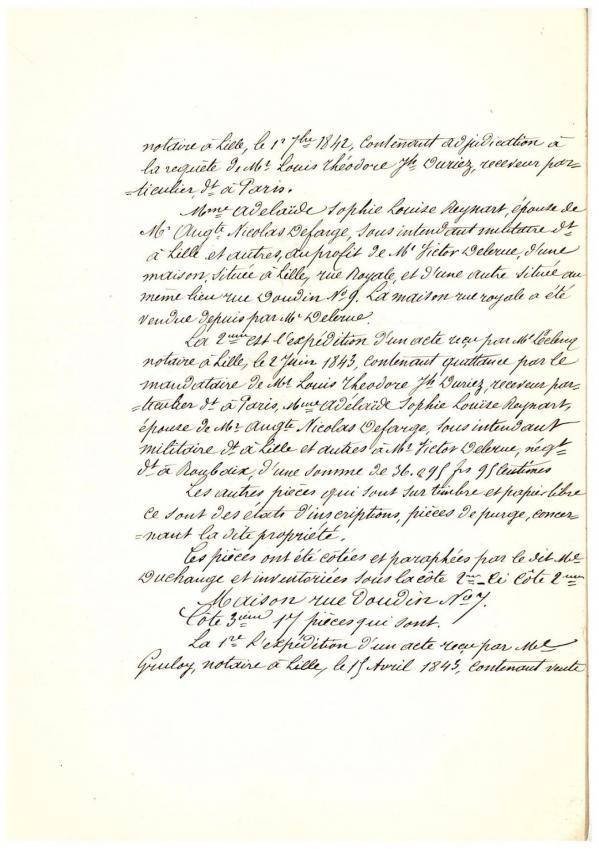 notaire à Lille, le 17bre 1842, contenant adjudication à
la requête de Mr Louis Théodore Jh Duriez, receveur par=
=ticulier, dt à Paris.
Mme Adelaïde Sophie Louise Reynart, épouse de
Mr Augte Nicolas Defarge, sous intendant militaire dt
à Lille et autres, au profit de Mr Victor Delerue, d'une
maison, située à Lille, rue Royale, et d'une autre située au
même lieu rue Doudin No 9. La maison rue royale a été
vendue depuis par Mr Delerue.
La 2me est l'expédition d'un acte reçu par Me Leclercq
notaire à Lille, le 2 Juin 1843, contenant quittance par le
mandataire de Mr Louis Théodore Jh Duriez, receveur par=
=ticulier dt à Paris, Mme Adélaïde Sophie Louise Reynart,
épouse de Mr Augte Nicolas Defarge, sous intendant
militaire dt à Lille et autres à Mr Victor Delerue, négt
dt à Roubaix, d'une somme de 36.295 frs 95 centimes
Les autres pièces qui sont sur timbre et papier libre
ce sont des états d'inscriptions, pièces de purge, concer=
=nant la dite propriété.
Ces pièces ont été cotées et paraphées par le dit Me
Duchange et inventoriées sous la côte 2me Ci Côte 2me
Maison rue Doudin No 7.
Côte 3ième 17 pièces qui sont.
La 1re L'expédition d'un acte reçu par Me
notaire à Lille, le 15 Avril 1843, contenant vente